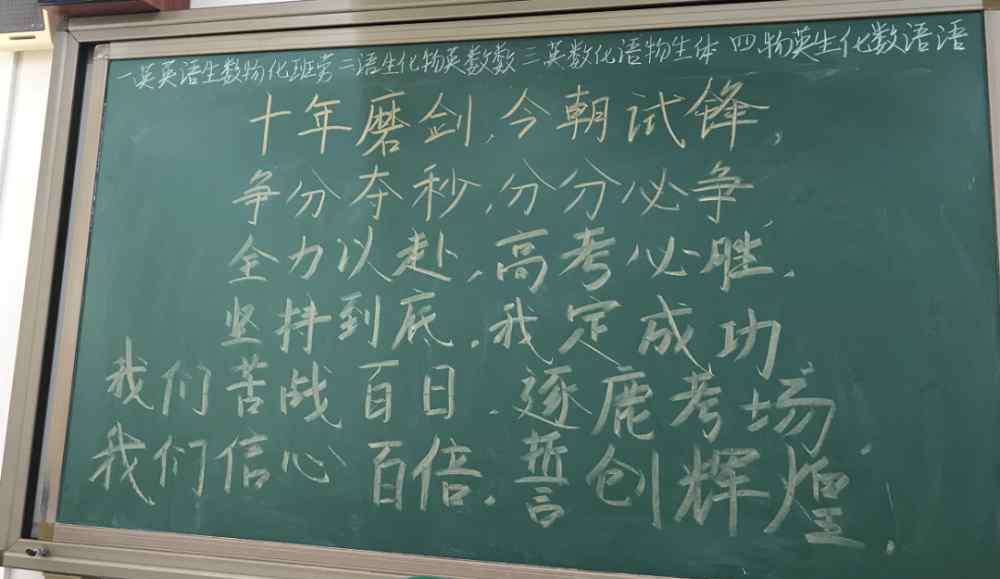 一英英语生数物化班劳二语生化物英数数三英数化语物生体四物英生化数语语
十年磨剑,今朝试锋,
争分夺秒,分分必争
全力以赴,高考必胜,
坚持到底,我定成功
我们苦战百日,逐鹿考场,
我们信心百倍,誓创辉煌,